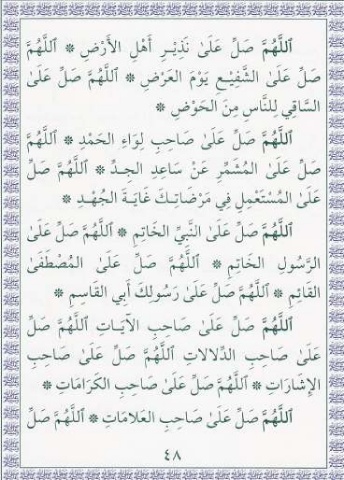 اَللَّهُمَّ صَلِّ عَلَىٰ نَذِيرِ أَهْلِ الأَرْضِ * اَللَّهُمَّ
صَلِّ عَلَىٰ الشَّفِيْعِ يَوْمَ العَرْضِ * اَللَّهُمَّ صَلِّ عَلَىٰ
السَّاقِي لِلنَّاسِ مِنَ الحَوْضِ *
اَللَّهُمَّ صَلِّ عَلَىٰ صَاحِبِ لِوَاءِ الحَمْدِ * اَللَّهُمَّ
صَلِّ عَلَىٰ المُشَمِّرِ عَنْ سَاعِدِ الجِدِّ * اَللَّهُمَّ صَلِّ
عَلَىٰ المُسْتَعْمِلِ فِي مَرْضَاتِكَ غَايَةَ الجُهْدِ *
اَللَّهُمَّ صَلِّ عَلَىٰ النَّبِيِّ الخَاتِمِ * اَللَّهُمَّ صَلِّ عَلَىٰ
الرَّسُولِ الخَاتِمِ * اَللَّهُمَّ صَلِّ عَلَىٰ المُصْطَفَىٰ
القَائِمِ * اَللَّهُمَّ صَلِّ عَلَىٰ رَسُولِكَ أَبِي القَاسِمِ *
اَللَّهُمَّ صَلِّ عَلَىٰ صَاحِبِ الآيَاتِ اَللَّهُمَّ صَلِّ
عَلَىٰ صَاحِبِ الدِّلالاتِ اَللَّهُمَّ صَلِّ عَلَىٰ صَاحِبِ
الإِشَارَاتِ * اَللَّهُمَّ صَلِّ عَلَىٰ صَاحِبِ الكَرَامَاتِ *
اَللَّهُمَّ صَلِّ عَلَىٰ صَاحِبِ العَلامَاتِ * اَللَّهُمَّ صَلِّ
٤٨